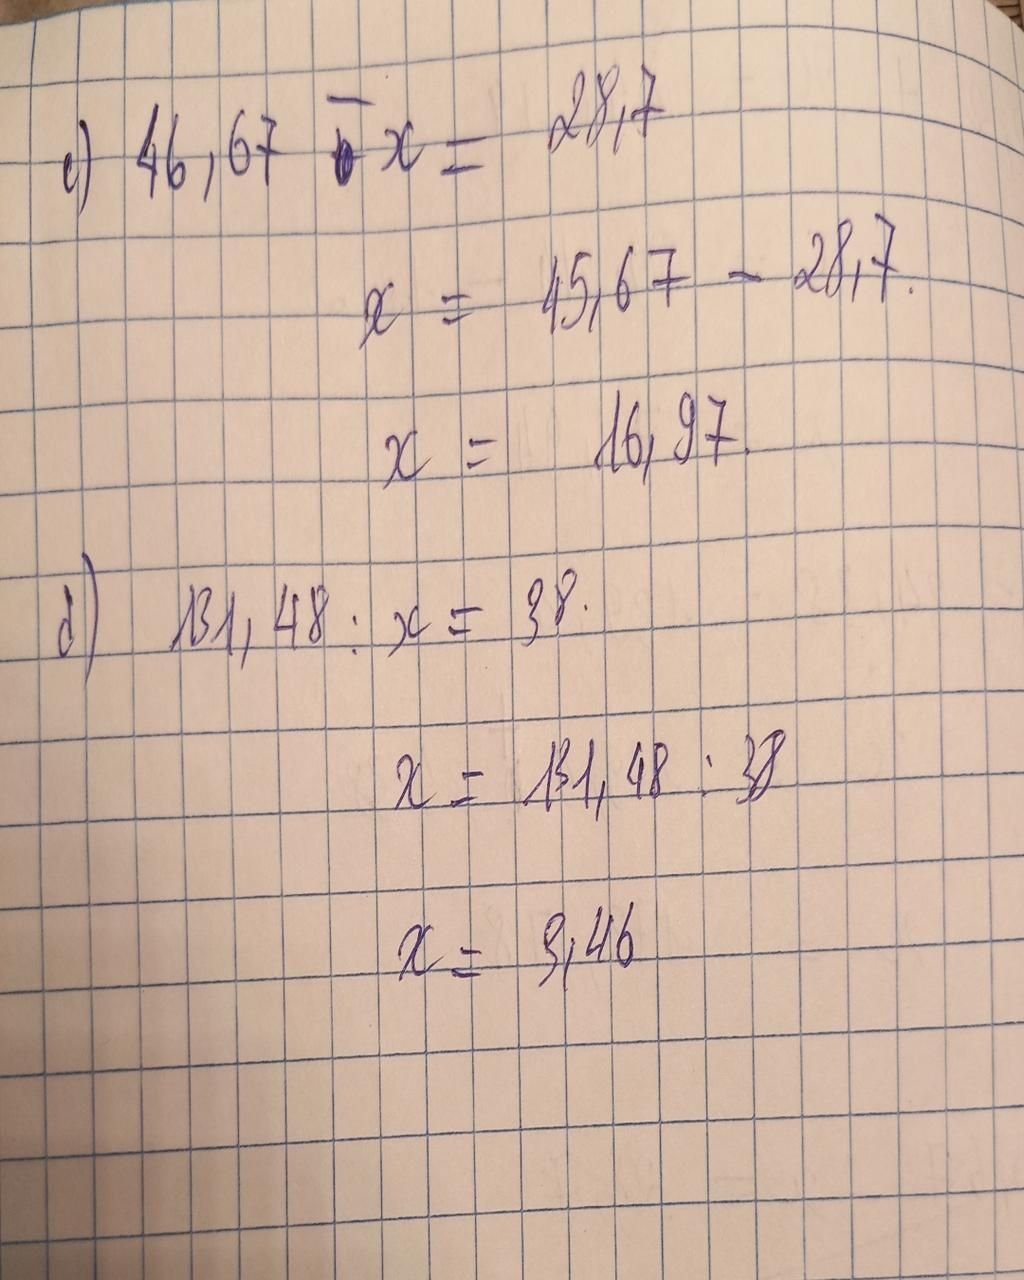 c) 46,67 - x = 28,7
x = 45,67 - 28,7.
x = 16,97.
d) 131,48 : x = 38.
x = 131,48 : 38
x = 3,46